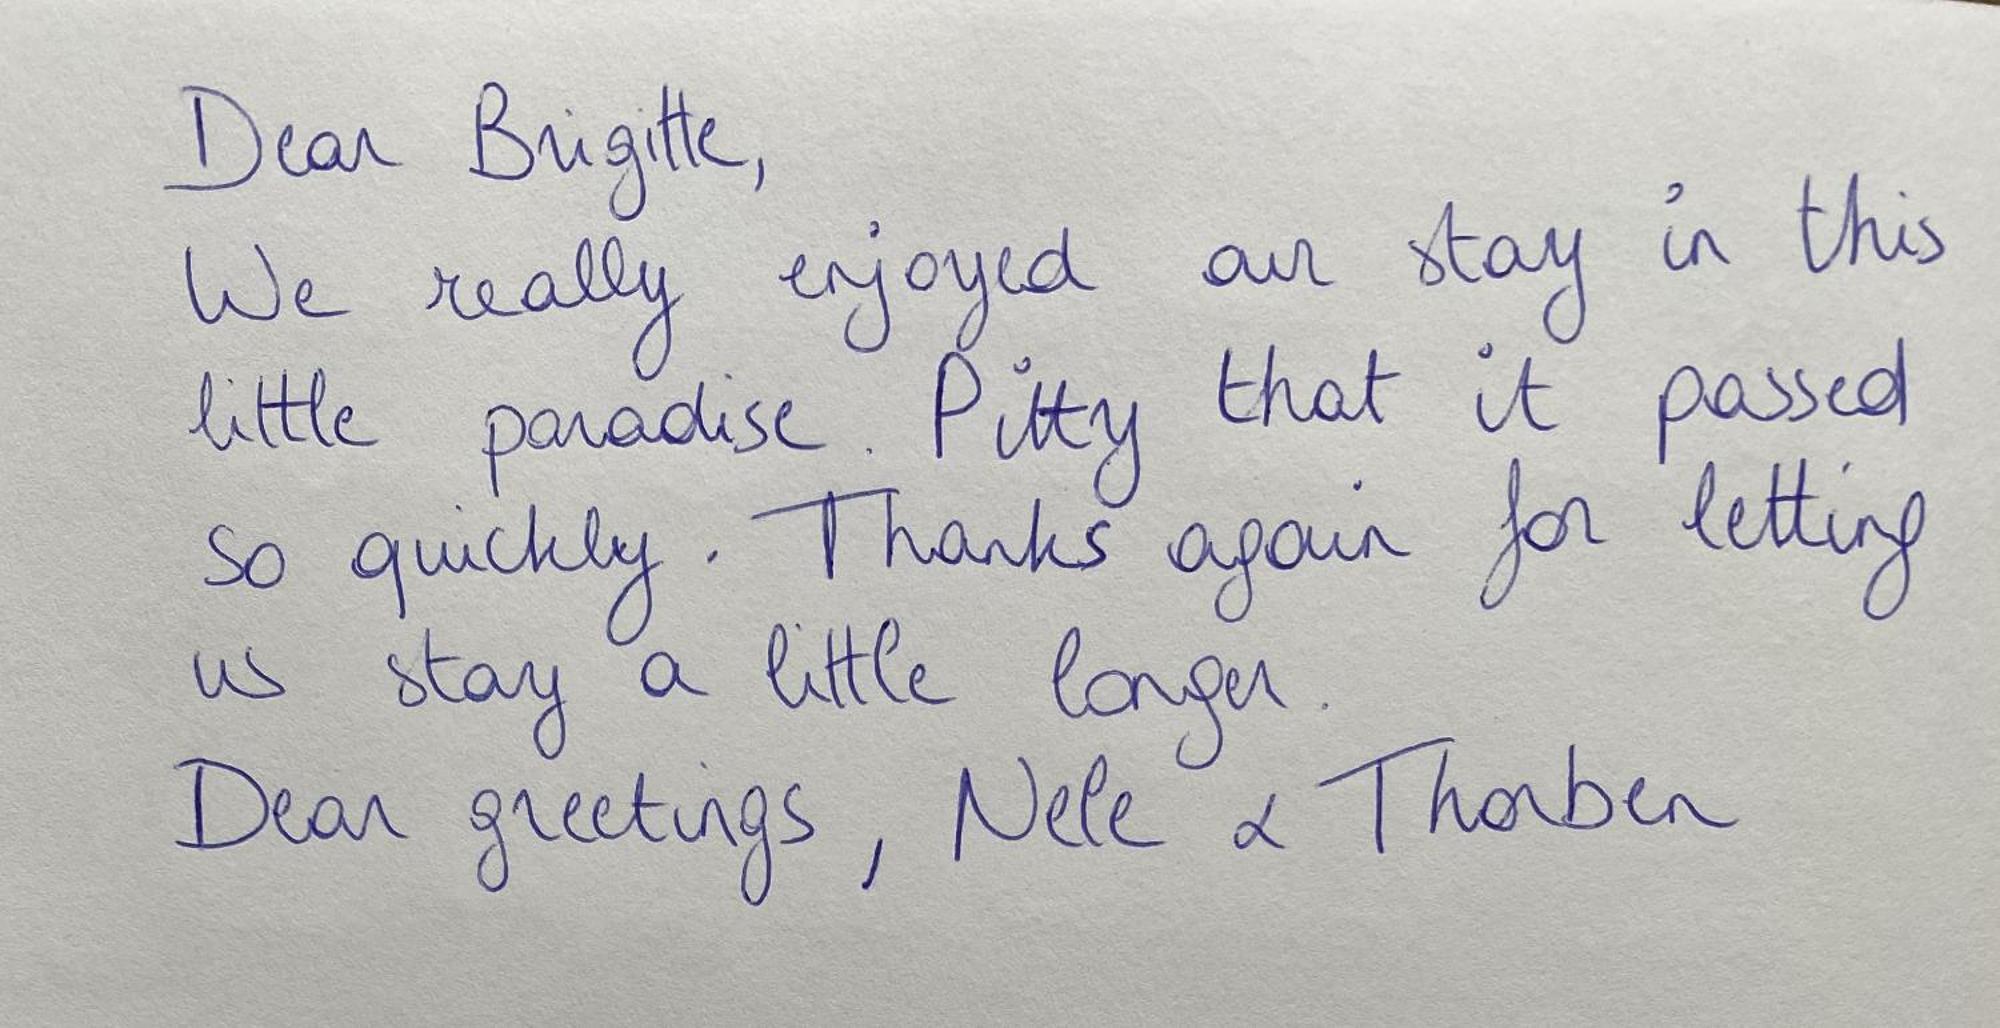 Dear Brigitte,
We really enjoyed our stay in this
little paradise. Pitty that it passed
so quickly. Thanks again for letting
us stay a little longer.
Dear greetings, Nele & Thorben